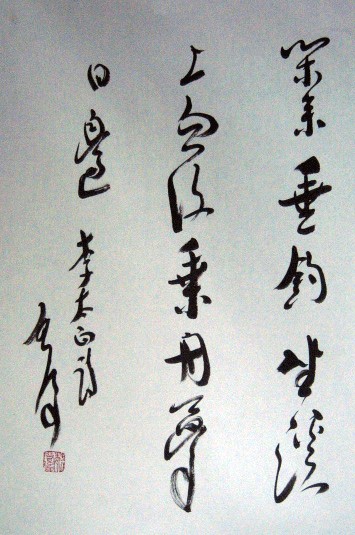 閒來垂釣坐溪
上忽復乘舟夢
日邊
李太白詩